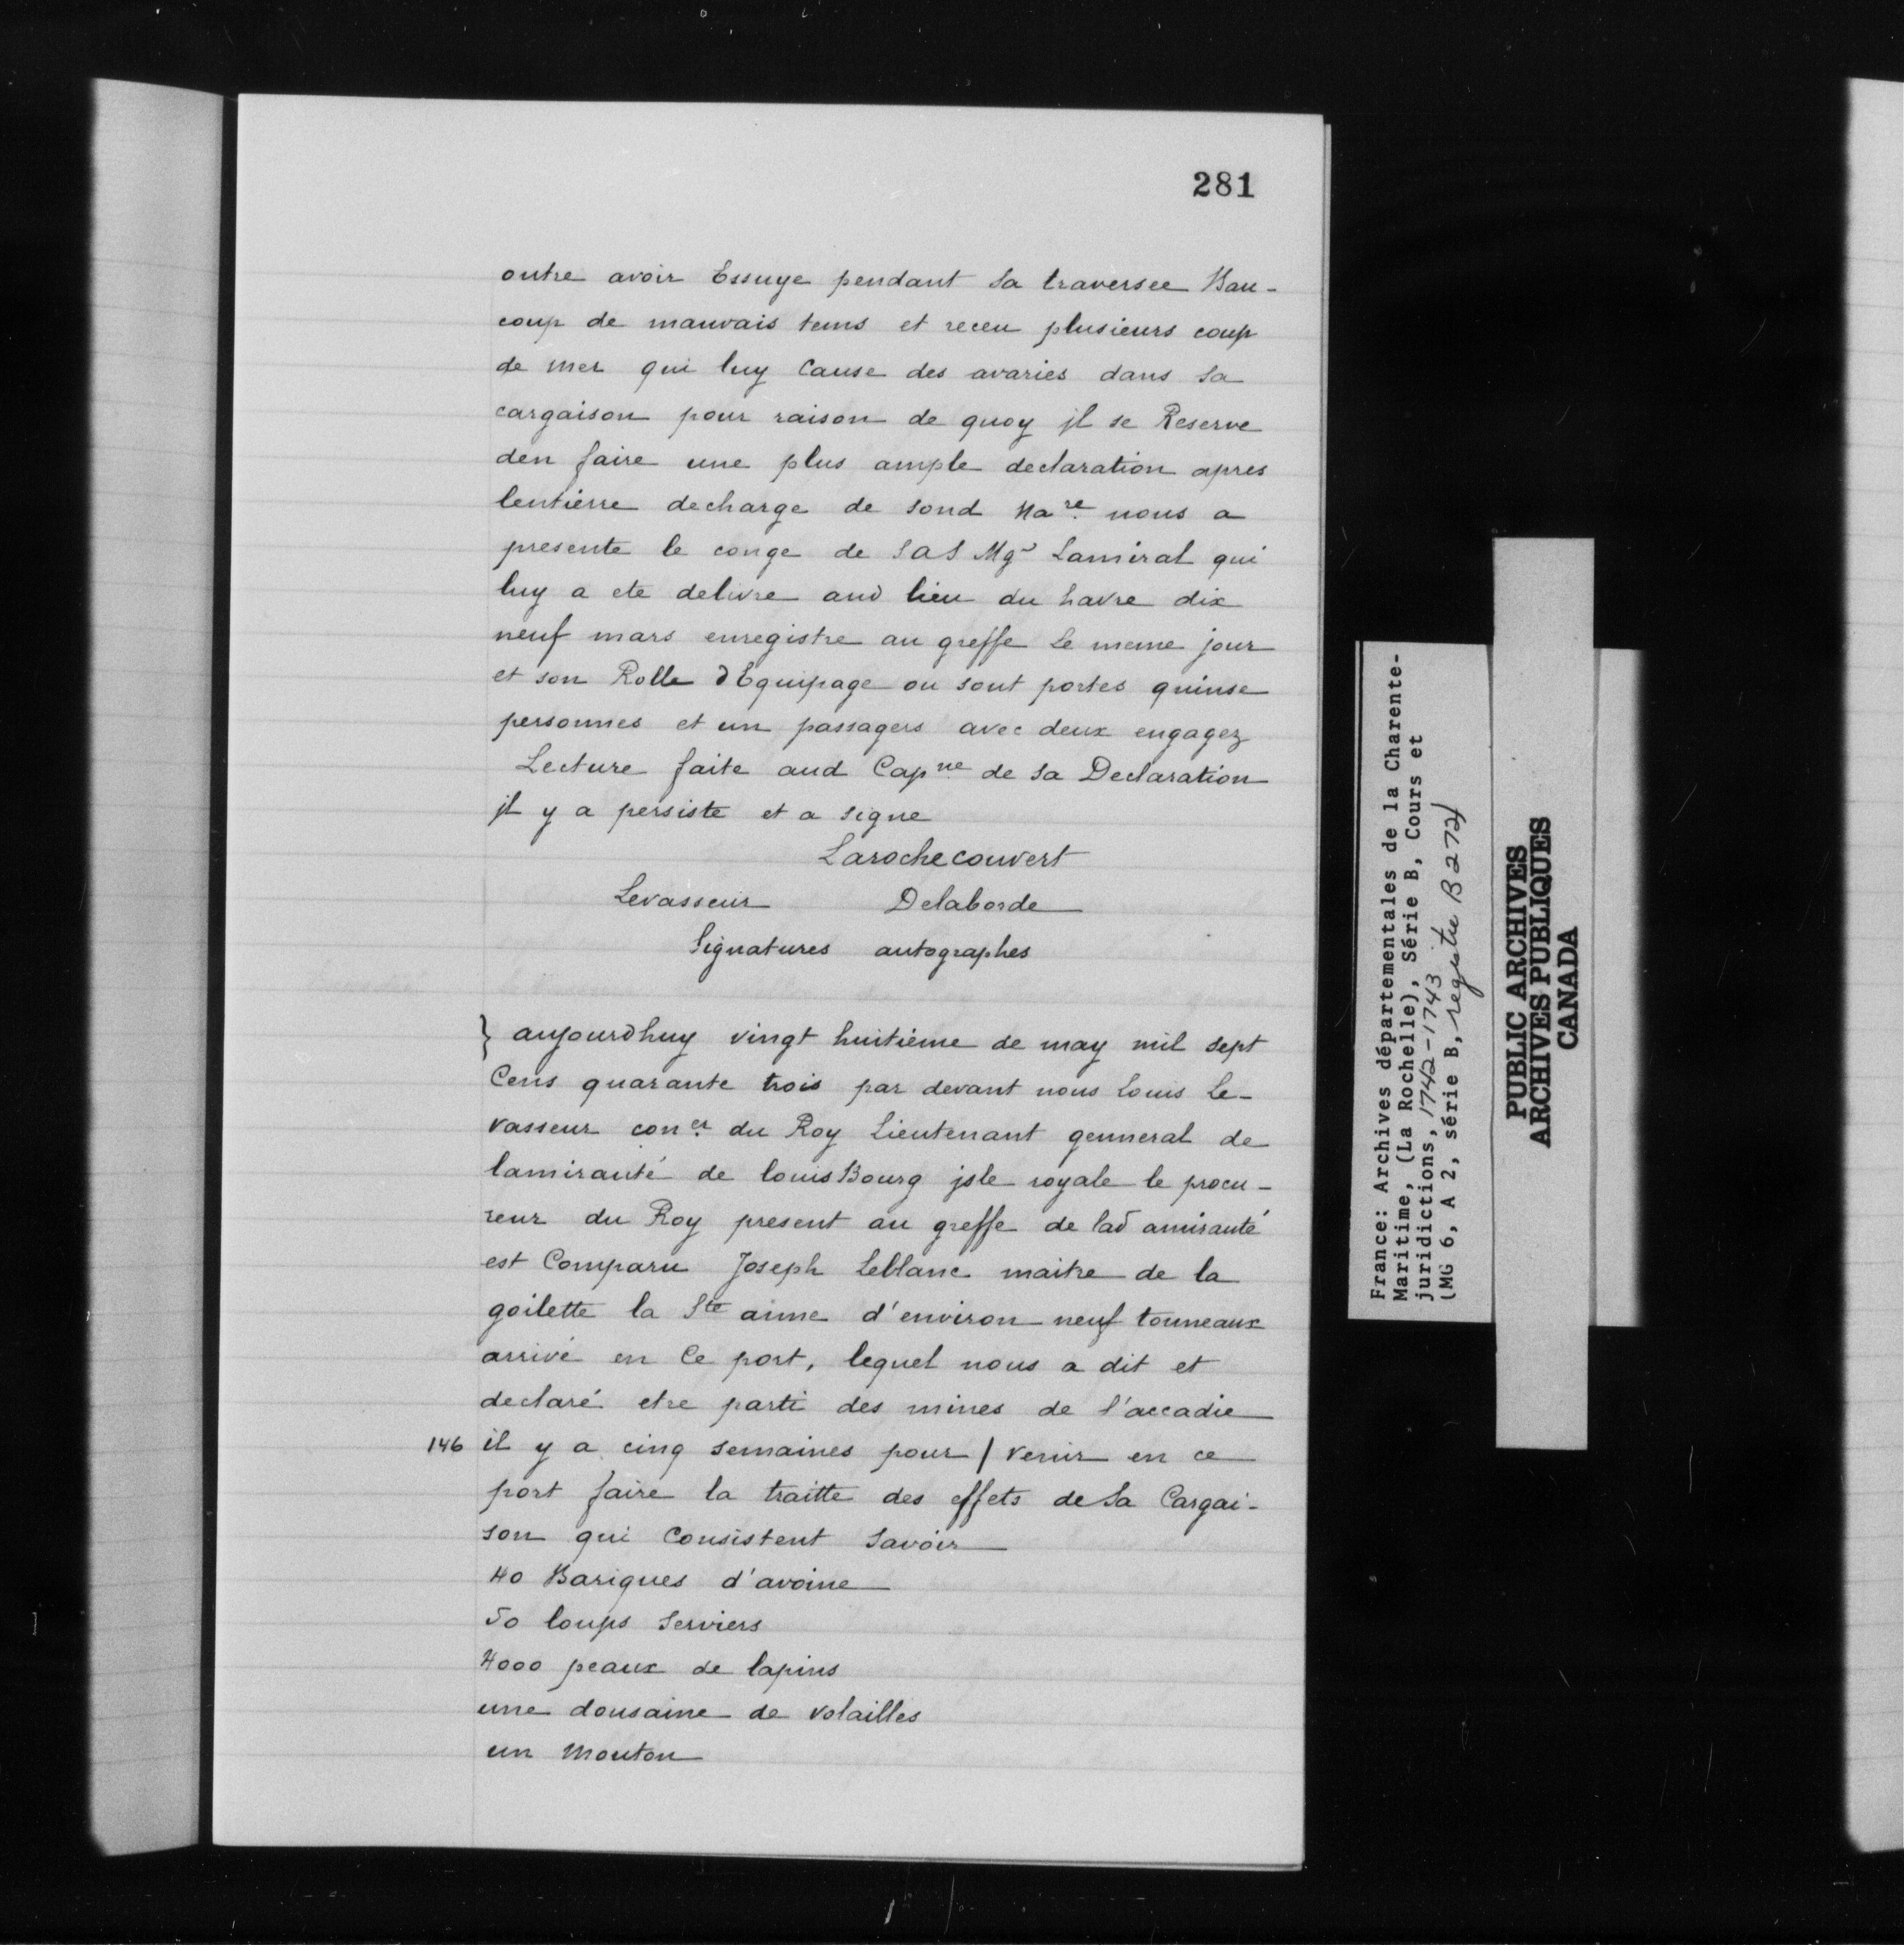 281
outre avoir Essuye pendant sa traversee Bau-
coup de mauvais tems et receu plusieurs coup
de mer qui luy Cause des avaries dans sa
cargaison pour raison de quoy jl se Reserve
den faire une plus ample declaration apres
lentierre decharge de sond Nare nous a
presente le conge de SAS Mgr Lamiral qui
luy a ete delivre aud lieu du havre dix
neuf mars enregistre au greffe le meme jour
et son Rolle dEquipage ou sont portes quinse
personnes et un passagers avec deux engagez
Lecture faite aud Capne de sa Declaration
jl y a persiste et a signe
Larochecouvert
Levasseur Delaborde
Signatures autographes
} aujourdhuy vingt huitième de may mil sept
Cens quarante trois par devant nous Louis Le-
vasseur coner du Roy Lieutenant genneral de
lamirauté de louisBourg jsle royale le procu-
reur du Roy present au greffe de lad amirauté
est Comparu Joseph Leblanc maitre de la
goilette la Ste anne d'environ neuf tonneaux
arrivé en Ce port, lequel nous a dit et
declaré etre parti des mines de l'accadie
146 il y a cinq semaines pour / venir en ce
port faire la traitte des effets de sa Cargai-
son qui Consistent Savoir
40 Bariques d'avoine
50 loups serviers
4000 peaux de lapins
une dousaine de volailles
un Mouton
France: Archives départementales de la Charente-
Maritime, (La Rochelle), Série B, Cours et
juridictions, 1742-1743
(MG 6, A 2, série B, registre B 272)
PUBLIC ARCHIVES
ARCHIVES PUBLIQUES
CANADA